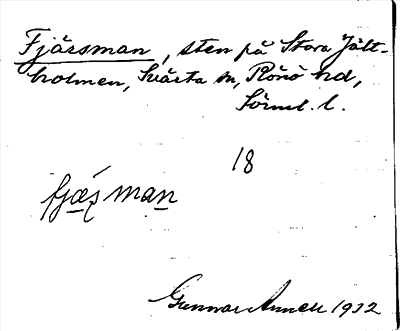 Fjärsman, sten på Stora Jält-
holmen, Svärta sn, Rönö hd,
Sörml. l.
18
fjæ̱ʂmaṉ
Gunnar Annell 1932